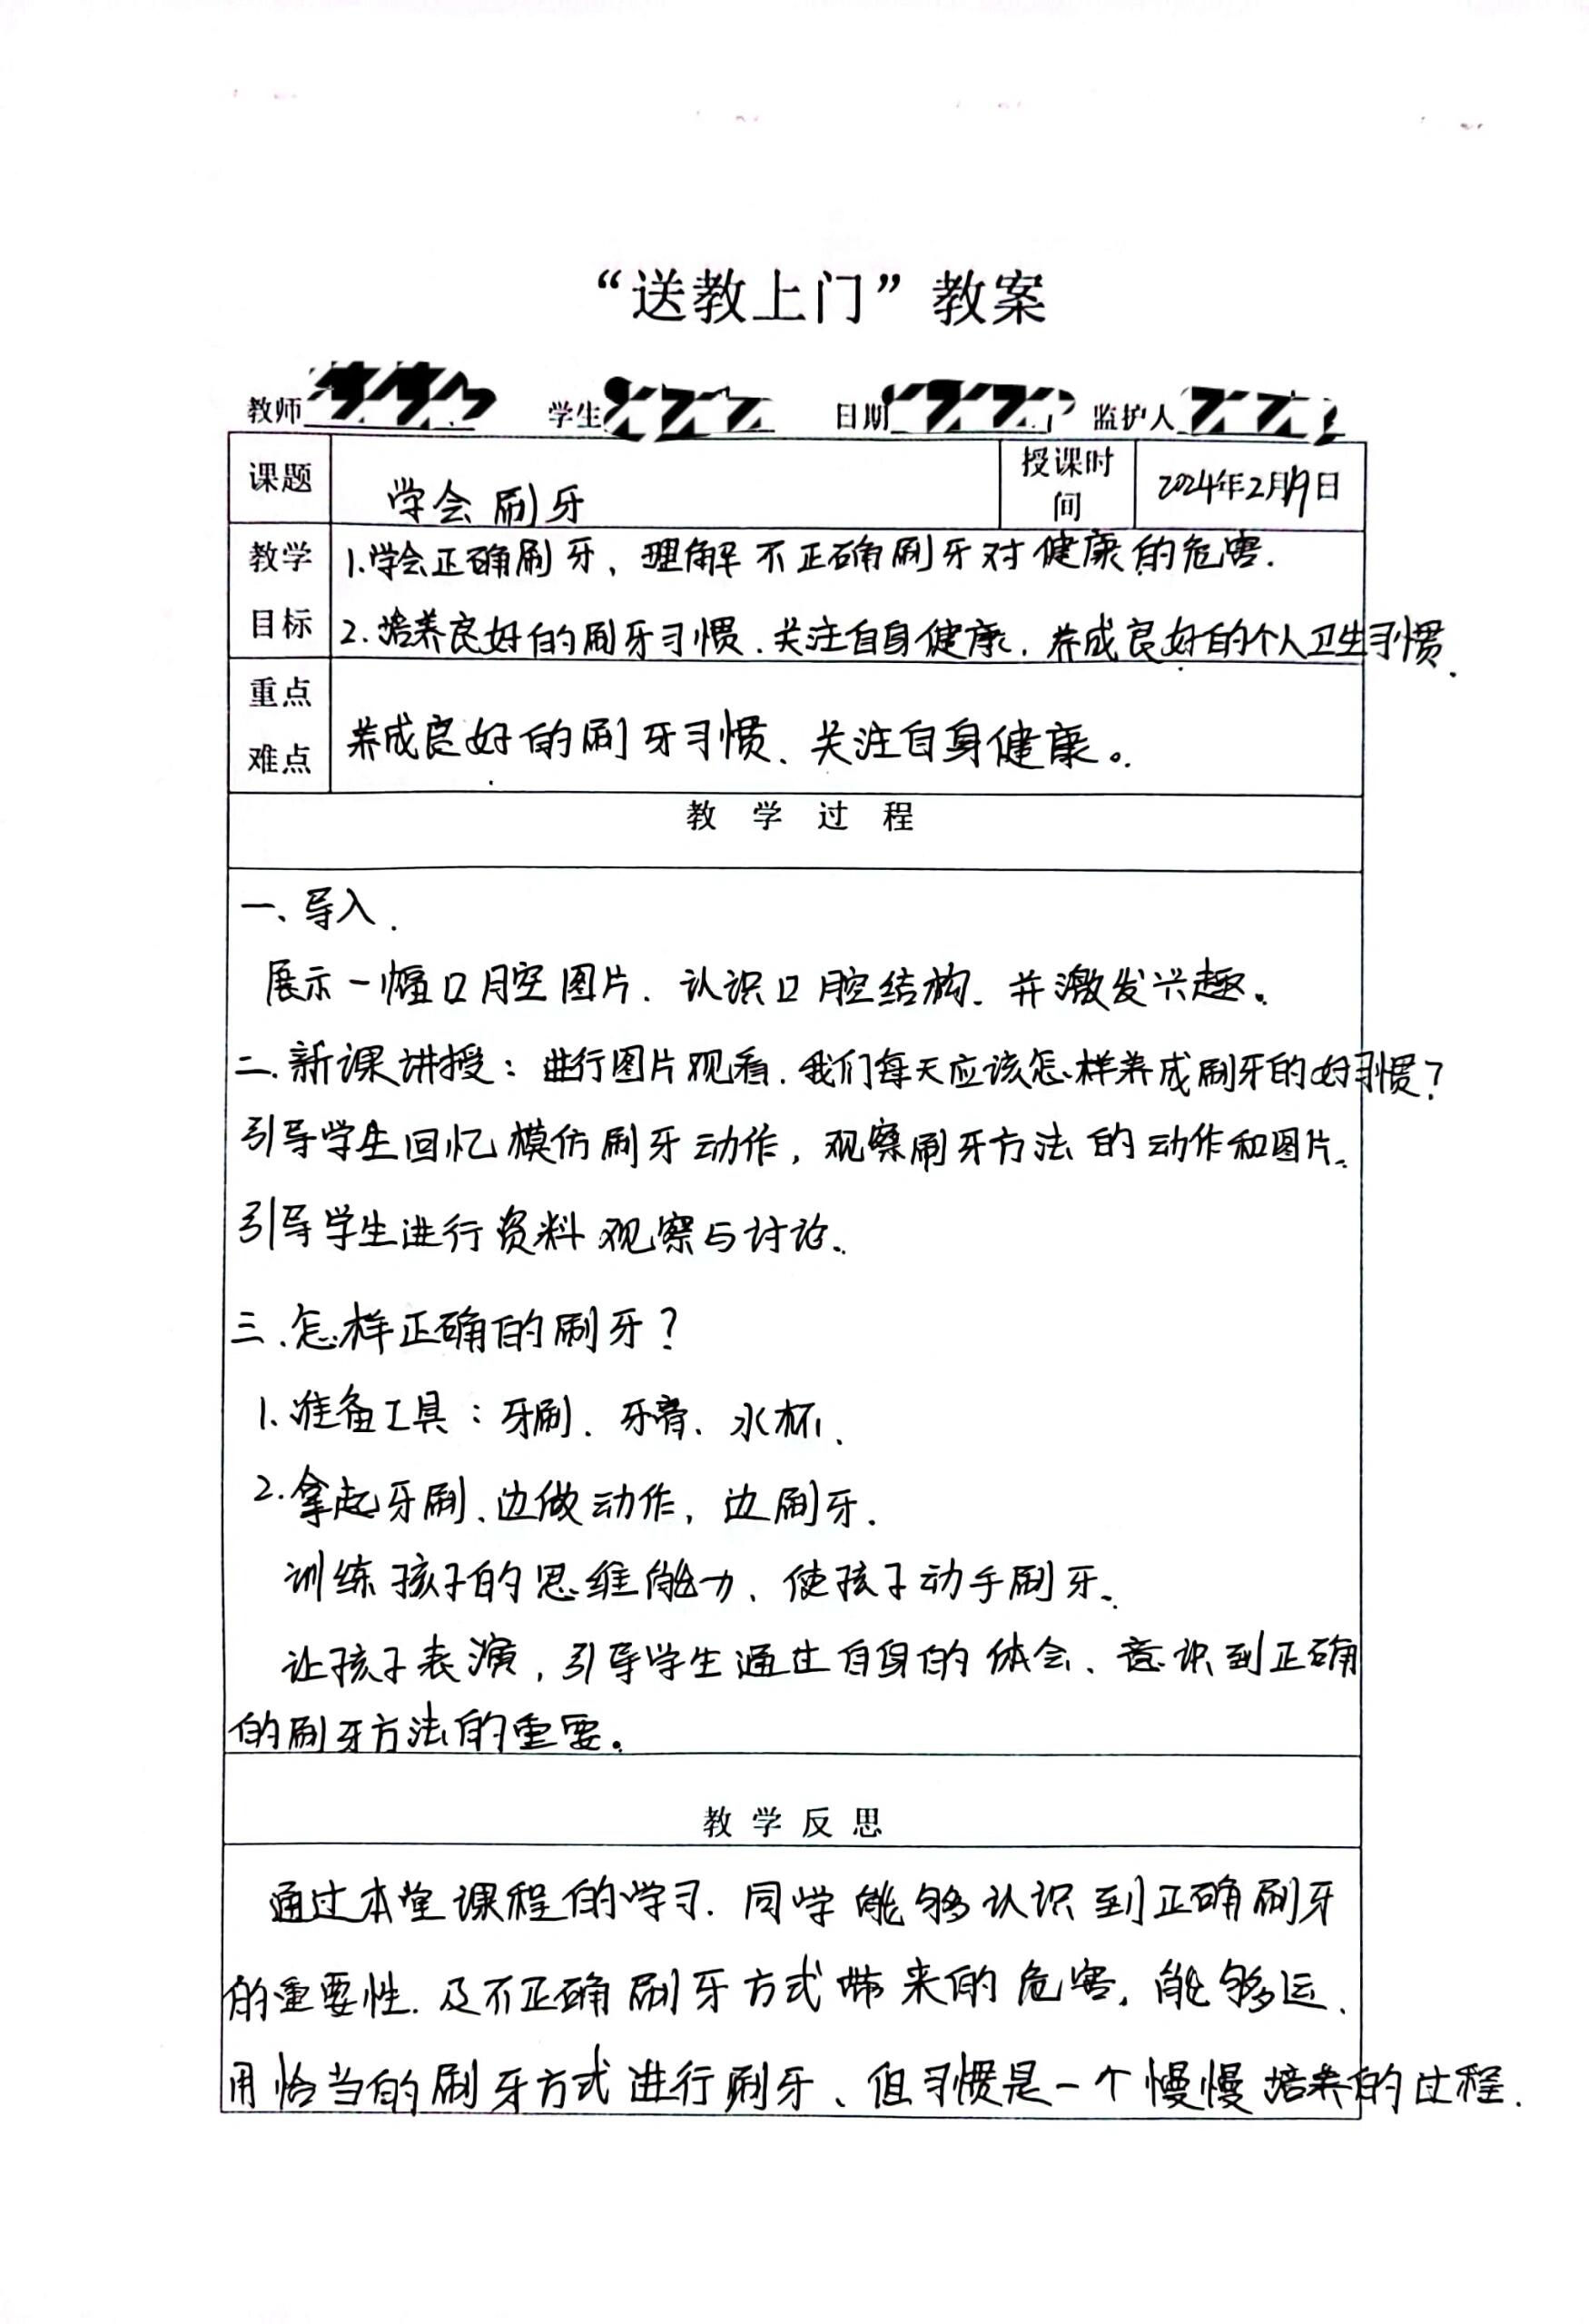 “送教上门”教案
教师 学生 日期 监护人
课题 学会刷牙 授课时间 2024年2月19日
教学目标 1.学会正确刷牙、理解不正确刷牙对健康的危害.
2.培养良好的刷牙习惯.关注自身健康.养成良好的个人卫生习惯.
重点难点 养成良好的刷牙习惯、关注自身健康。
教学过程
一、导入.
展示一幅口腔图片.认识口腔结构.并激发兴趣。
二.新课讲授：进行图片观看.我们每天应该怎样养成刷牙的好习惯？
引导学生回忆模仿刷牙动作，观察刷牙方法的动作和图片.
引导学生进行资料观察与讨论.
三.怎样正确的刷牙？
1.准备工具：牙刷.牙膏、水杯.
2.拿起牙刷.边做动作，边刷牙.
训练孩子的思维能力、使孩子动手刷牙.
让孩子表演，引导学生通过自身的体会、意识到正确
的刷牙方法的重要。
教学反思
通过本堂课程的学习.同学能够认识到正确刷牙
的重要性.及不正确刷牙方式带来的危害.能够运
用恰当的刷牙方式进行刷牙、但习惯是一个慢慢培养的过程.